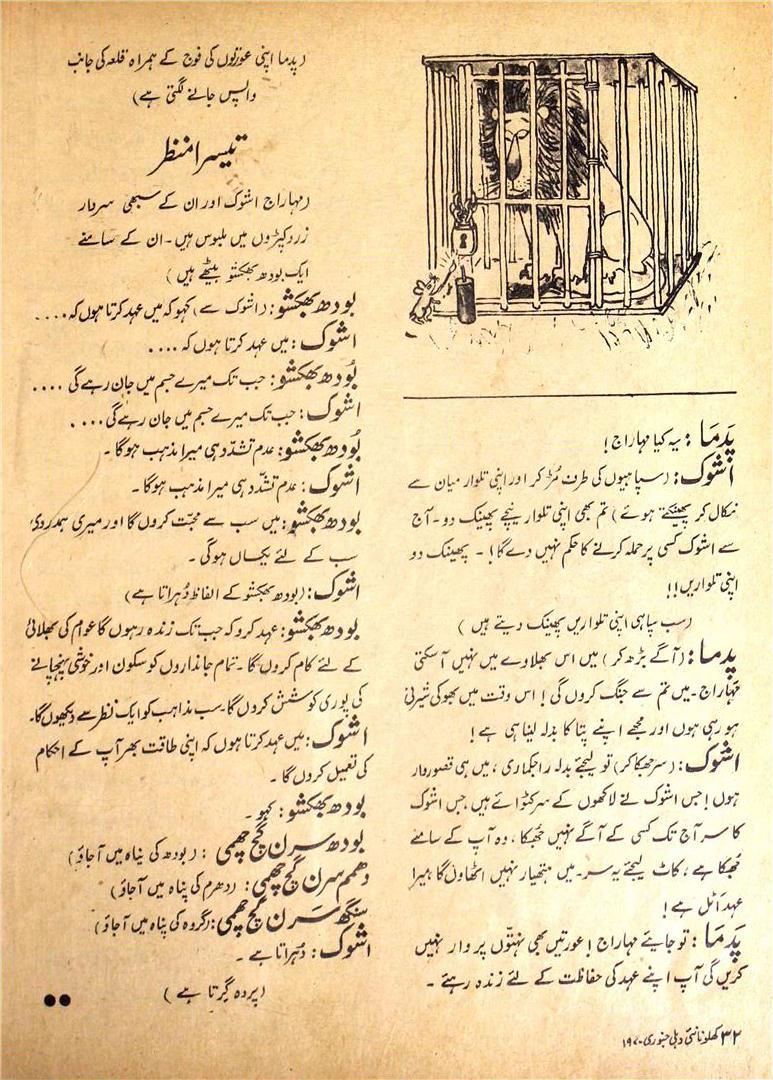 پدما : یہ کیا مہاراج!
اشوک : (سپاہیوں کی طرف مُڑ کر اور اپنی تلوار میان سے
نکال کر پھینکتے ہوئے) تم بھی اپنی تلوار نیچے پھینک دو۔ آج
سے اشوک کسی پر حملہ کرنے کا حکم نہیں دے گا!۔ پھینک دو
اپنی تلواریں!!
(سب سپاہی اپنی تلواریں پھینک دیتے ہیں)
پدما : (آگے بڑھ کر) میں اس بھلاوے میں نہیں آ سکتی
مہاراج۔ میں تم سے جنگ کروں گی! اس وقت میں بھوکی شیرنی
ہو رہی ہوں اور مجھے اپنے پتا کا بدلہ لینا ہی ہے!
اشوک : (سر جھکا کر) تو لیجئے بدلہ راجکماری، میں ہی قصوروار
ہوں! جس اشوک نے لاکھوں کے سر کٹوائے ہیں، جس اشوک
کا سر آج تک کسی کے آگے نہیں جُھکا، وہ آپ کے سامنے
جُھکا ہے، کاٹ لیجئے یہ سر۔ میں ہتھیار نہیں اٹھاؤں گا، میرا
عہد اَٹل ہے!
پدما : تو جایئے مہاراج! عورتیں بھی نہتّوں پر وار نہیں
کریں گی آپ اپنے عہد کی حفاظت کے لئے زندہ رہئے۔
(پدما اپنی عورتوں کی فوج کے ہمراہ قلعہ کی جانب
واپس جانے لگتی ہے)
تیسرا منظر
(مہاراج اشوک اور ان کے سبھی سردار
زرد کپڑوں میں ملبوس ہیں۔ ان کے سامنے
ایک بودھ بھکشو بیٹھے ہیں)
بودھ بھکشو : (اشوک سے) کہو کہ میں عہد کرتا ہوں کہ....
اشوک : میں عہد کرتا ہوں کہ....
بُودھ بھکشو : جب تک میرے جسم میں جان رہے گی....
اشوک : جب تک میرے جسم میں جان رہے گی....
بُودھ بھکشو : عدم تشدّد ہی میرا مذہب ہوگا۔
اشوک : عدم تشدّد ہی میرا مذہب ہوگا۔
بودھ بھکشو : میں سب سے محبّت کروں گا اور میری ہمدردی
سب کے لئے یکساں ہوگی۔
اشوک : (بودھ بھکشو کے الفاظ دُہراتا ہے)
بودھ بھکشو : عہد کرو کہ جب تک زندہ رہوں گا عوام کی بھلائی
کے لئے کام کروں گا۔ تمام جانداروں کو سکون اور خوشی پہنچانے
کی پوری کوشش کروں گا۔ سب مذاہب کو ایک نظر سے دیکھوں گا۔
اشوک : میں عہد کرتا ہوں کہ اپنی طاقت بھر آپ کے احکام
کی تعمیل کروں گا۔
بودھ بھکشو : کہو۔
بودھ سرن گچ چھمی : (بودھ کی پناہ میں آجاؤ)
دھمم سرن گچ چھمی : (دھرم کی پناہ میں آجاؤ)
سنگھ سَرن گچ چھمی : (گروہ کی پناہ میں آجاؤ)
اشوک : دُہراتا ہے۔
(پردہ گرتا ہے)
۳۲ کھلونا نئی دہلی جنوری ۱۹۷۰